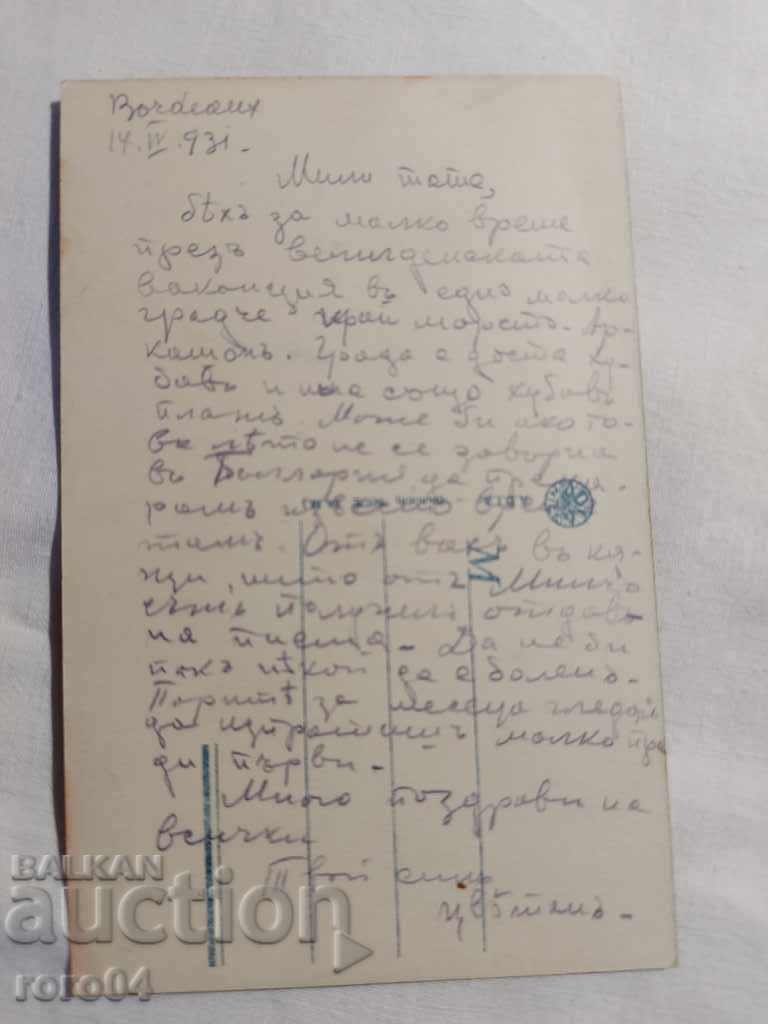 Bordeaux
14.IV.931.-
Мили тата,
бѣхъ за малко време
презъ великденската
ваканция въ едно малко
градче край морето - Ар-
кашонъ. Града е доста ху-
бавъ и има също хубавъ
плажъ. Може би ако то-
ва лѣто не се завърна
въ България да прека-
рамъ известно време
тамъ. Отъ васъ въ кѫ-
щи, нито отъ
съмъ получилъ отдав-
на писма - Да не би
пъкъ нѣкой да е боленъ.
Паритѣ за месеца гледай
да изпратишъ малко пре-
ди първи.-
Много поздрави на
всички
Твой синъ
Цвѣтанъ.-
BALKAN
auction
roro04